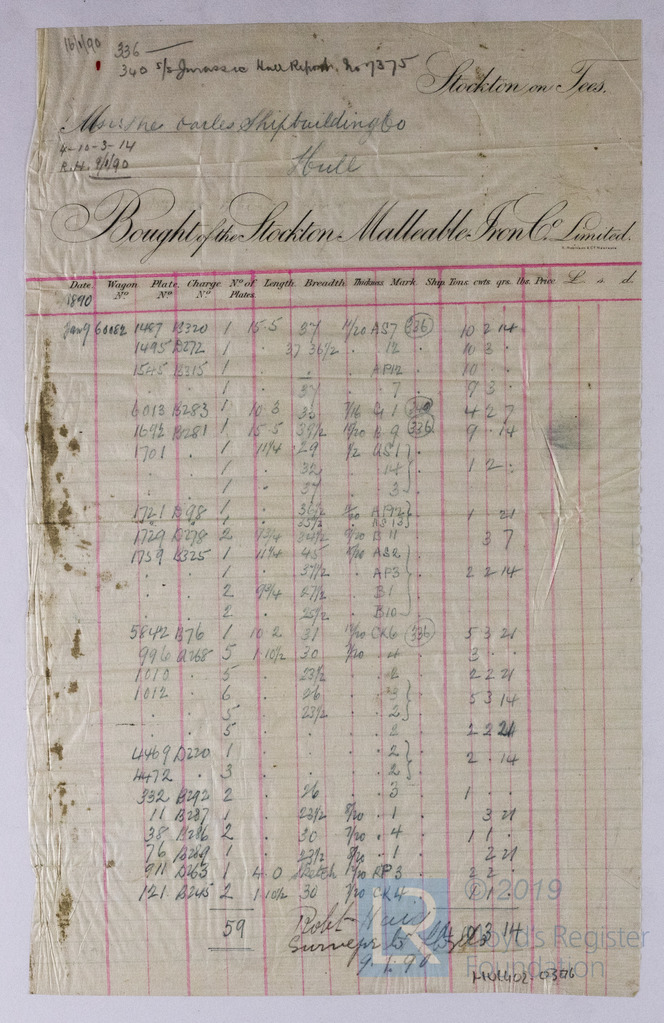 16/1/90 336 —
340 S/S Jurassic Hull Report. No 7375
Stockton on Tees.
Messrs The Earles Shipbuilding Co
4-10-3-14
R.H. 9/1/90 Hull
Bought of the Stockton Malleable Iron Co. Limited.
Date Wagon No. Plate. No. Charge No. No. of Plates. Length. Breadth. Thickness. Mark. Ship Tons. cwts. qrs. lbs. Price £ s. d.
1890
Jany 9 60082 1487 B320 1 15 5 37 11/20 AS7 (336) 10 2 14
1495 D272 1 . 37 36 1/2 . 12 . 10 3 .
1545 B315 1 . . AP12 . 10 . .
. . 1 . 37 . 7 . 9 3 .
6013 B283 1 10 3 35 7/16 G1 4 2 7
1692 B281 1 15 5 39 1/2 11/20 B9 (336) 9 . 14
1701 . 1 11 9/4 29 1/2 US1
. . 1 . 32 . 14 . 1 2 .
. . 1 . 37 . 3
1721 B98 1 . 36 1/2 AP12 . 1 . 21
35 1/2
1729 D278 2 B11 . 3 7
1759 B325 1 11 9/4 45 AS2
. . 1 . 37 1/2 . AP3 . 2 2 14
. . 2 9 9/4 27 1/2 . B1
. . 2 . 25 1/2 . B10
5842 B76 1 10 2 31 CK6 (336) 5 3 21
996 B268 5 1 10 1/2 30 7/20 4 . 3 . .
1010 . 5 . 23 1/2 . 2 . 2 2 21
1012 . 6 . 26 . 3
. . 5 . 23 1/2 . 2 . 5 3 14
. . 5 . . . 2 . 2 2 21
4469 D220 1 . . . 2
4472 . 3 . . . 2 . 2 . 14
332 B292 2 . 26 . 3 . 1 . .
11 B287 1 . 23 1/2 8/20 1 . 3 21
38 B286 2 . 30 7/20 4 . 1 1 .
76 B289 1 . 23 1/2 8/20 1 . 2 21
911 D263 1 4 0 Sketch RP3 . 2 2 .
121 B245 2 1 10 1/2 30 7/20 CK4 . 1 1 .
59
Robt Hair
Surveyor to
3 14
9.1.90
© 2019
Lloyd's Register
Foundation
HUL402-0306